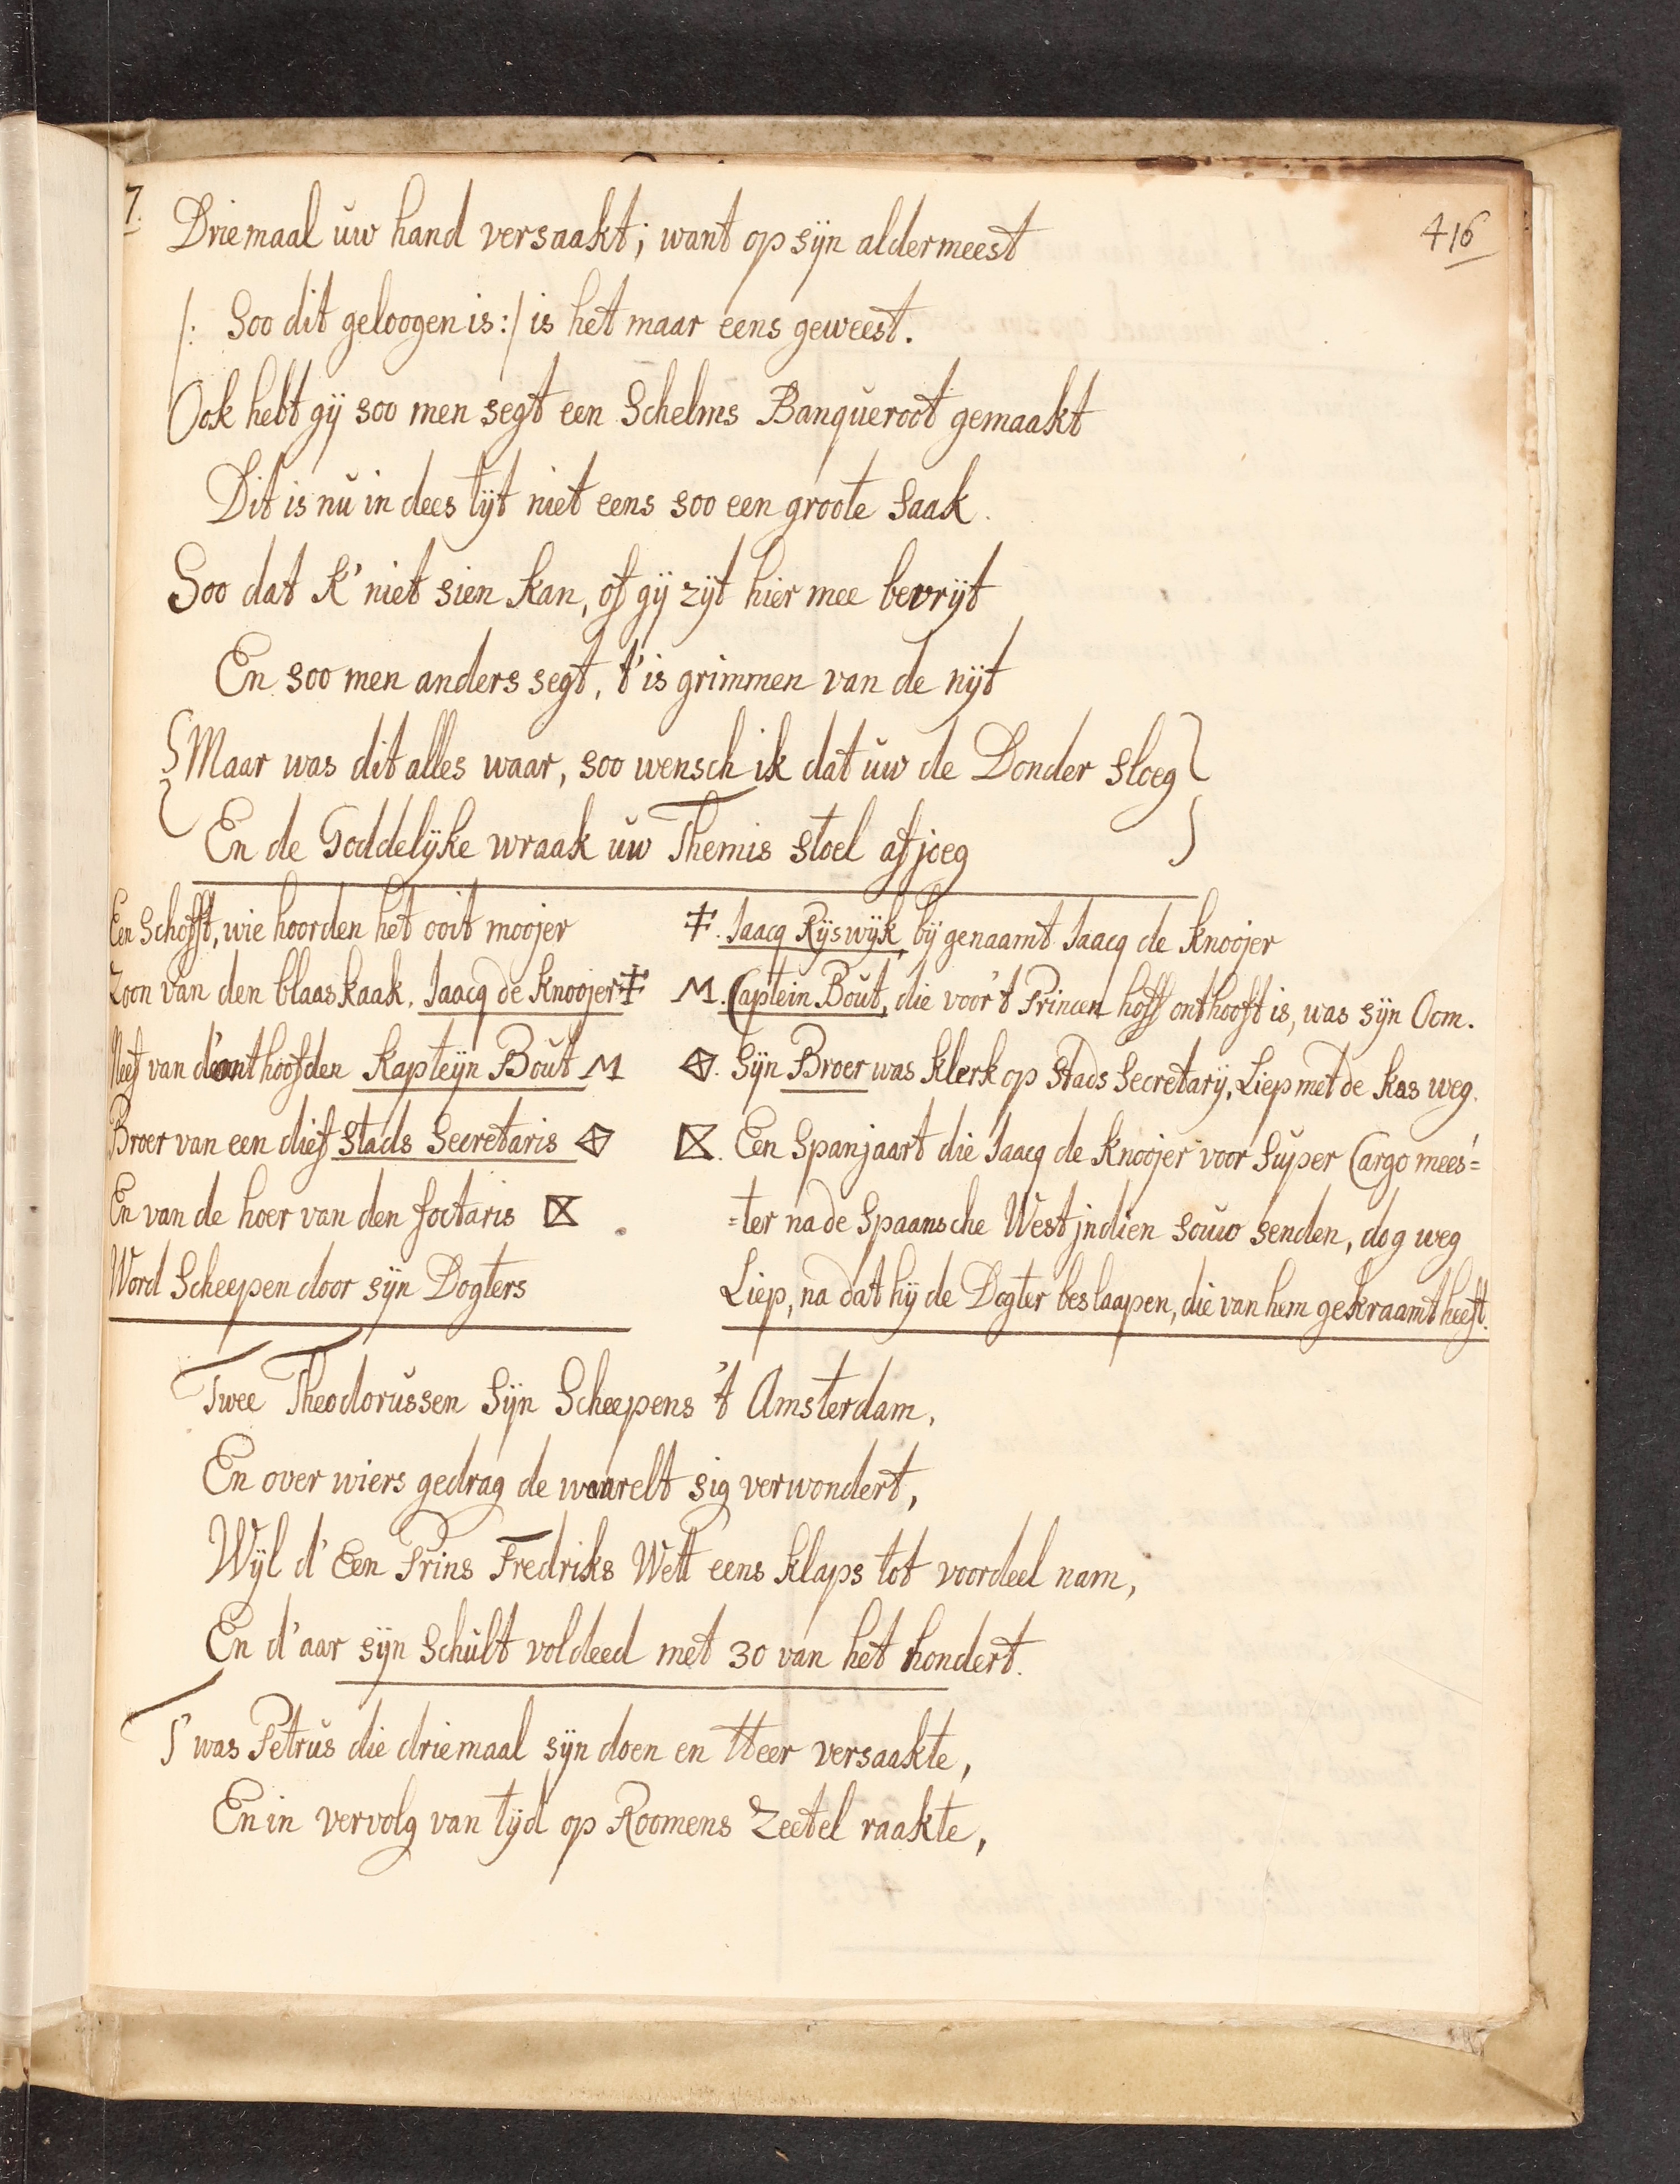 7.
416
Driemaal uw hand versaakt; want op sijn aldermeest
/: Soo dit geloogen is:/ is het maar eens geweest.
Ook hebt gij soo men segt een Schelms Banqueroot gemaakt
Dit is nu in dees tijt niet eens soo een groote Saak.
Soo dat K' niet sien kan, of gij zijt hier mee bevrijt
En soo men anders segt, t' is grimmen van de nijt
Maar was dit alles waar, soo wensch ik dat uw de Donder sloeg
En de Goddelijke wraak uw Themis stoel af joeg
Een Schofft, wie hoorden het ooit moojer
Zoon van den blaaskaak. Jaacq de Knoojer ‡
Neef van d'onthoofden Kapteijn Bout M
Broer van een dief Stads Secretaris
En van de hoer van den foctaris
Word Scheepen door sijn Dogters
‡. Jaacq Rijswijk, bij genaamt Jaacq de Knoojer
M. Captein Bout, die voor 't Princen hoff onthooft is, was sijn Oom.
Sijn Broer was Klerk op Stads Secretarij, Liep met de Kas weg.
Een Spanjaart die Jaacq de Knoojer voor Super Cargo mees=
=ter na de Spaansche West jndien souw senden, dog weg
Liep, na dat hij de Dogter beslaapen, die van hem gekraamt heeft.
Twee Theodorussen Sijn Scheepens 't Amsterdam,
En over wiers gedrag de waarelt sig verwondert,
Wijl d' Een Prins Fredriks Wett eens klaps tot voordeel nam,
En d' aar sijn Schult voldeed met 30 van het hondert.
T' was Petrus die driemaal sijn doen en Heer versaakte,
En in vervolg van tijd op Roomens Zeetel raakte,